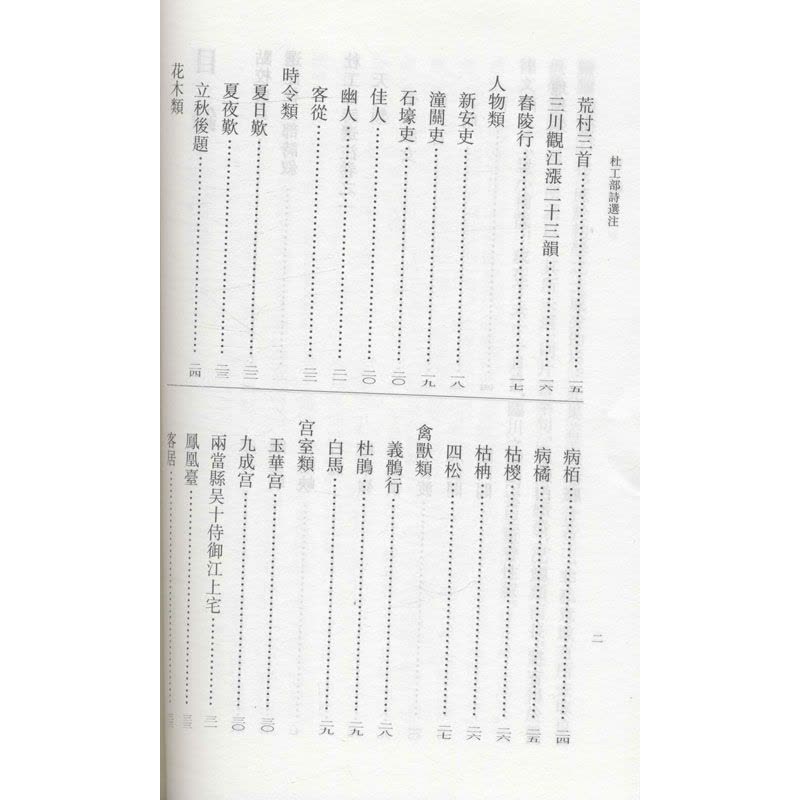 杜工部詩選注
荒村三首……一五
三川觀江漲二十三韻……一六
舂陵行……一七
人物類
新安吏……一八
潼關吏……一九
石壕吏……二〇
佳人……二〇
幽人……二一
客從……二二
時令類
夏日歎……二二
夏夜歎……二三
立秋後題……二四
花木類
病栢……二四
病橘……二五
枯椶……二六
枯柟……二六
四松……二七
禽獸類
義鶻行……二八
杜鵑……二九
白馬……二九
宫室類
玉華宫……三〇
九成宫……三〇
兩當縣吴十侍御江上宅……三一
鳳凰臺……三二
客居……三三
二